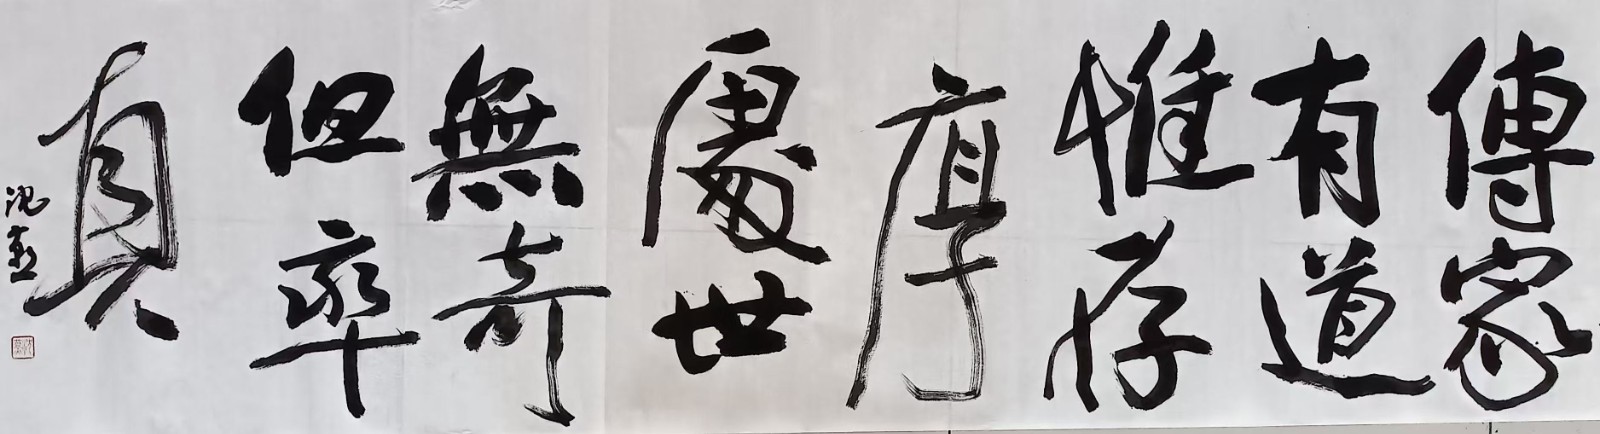 傳家
有道
惟存
厚
處世
無奇
但率
真